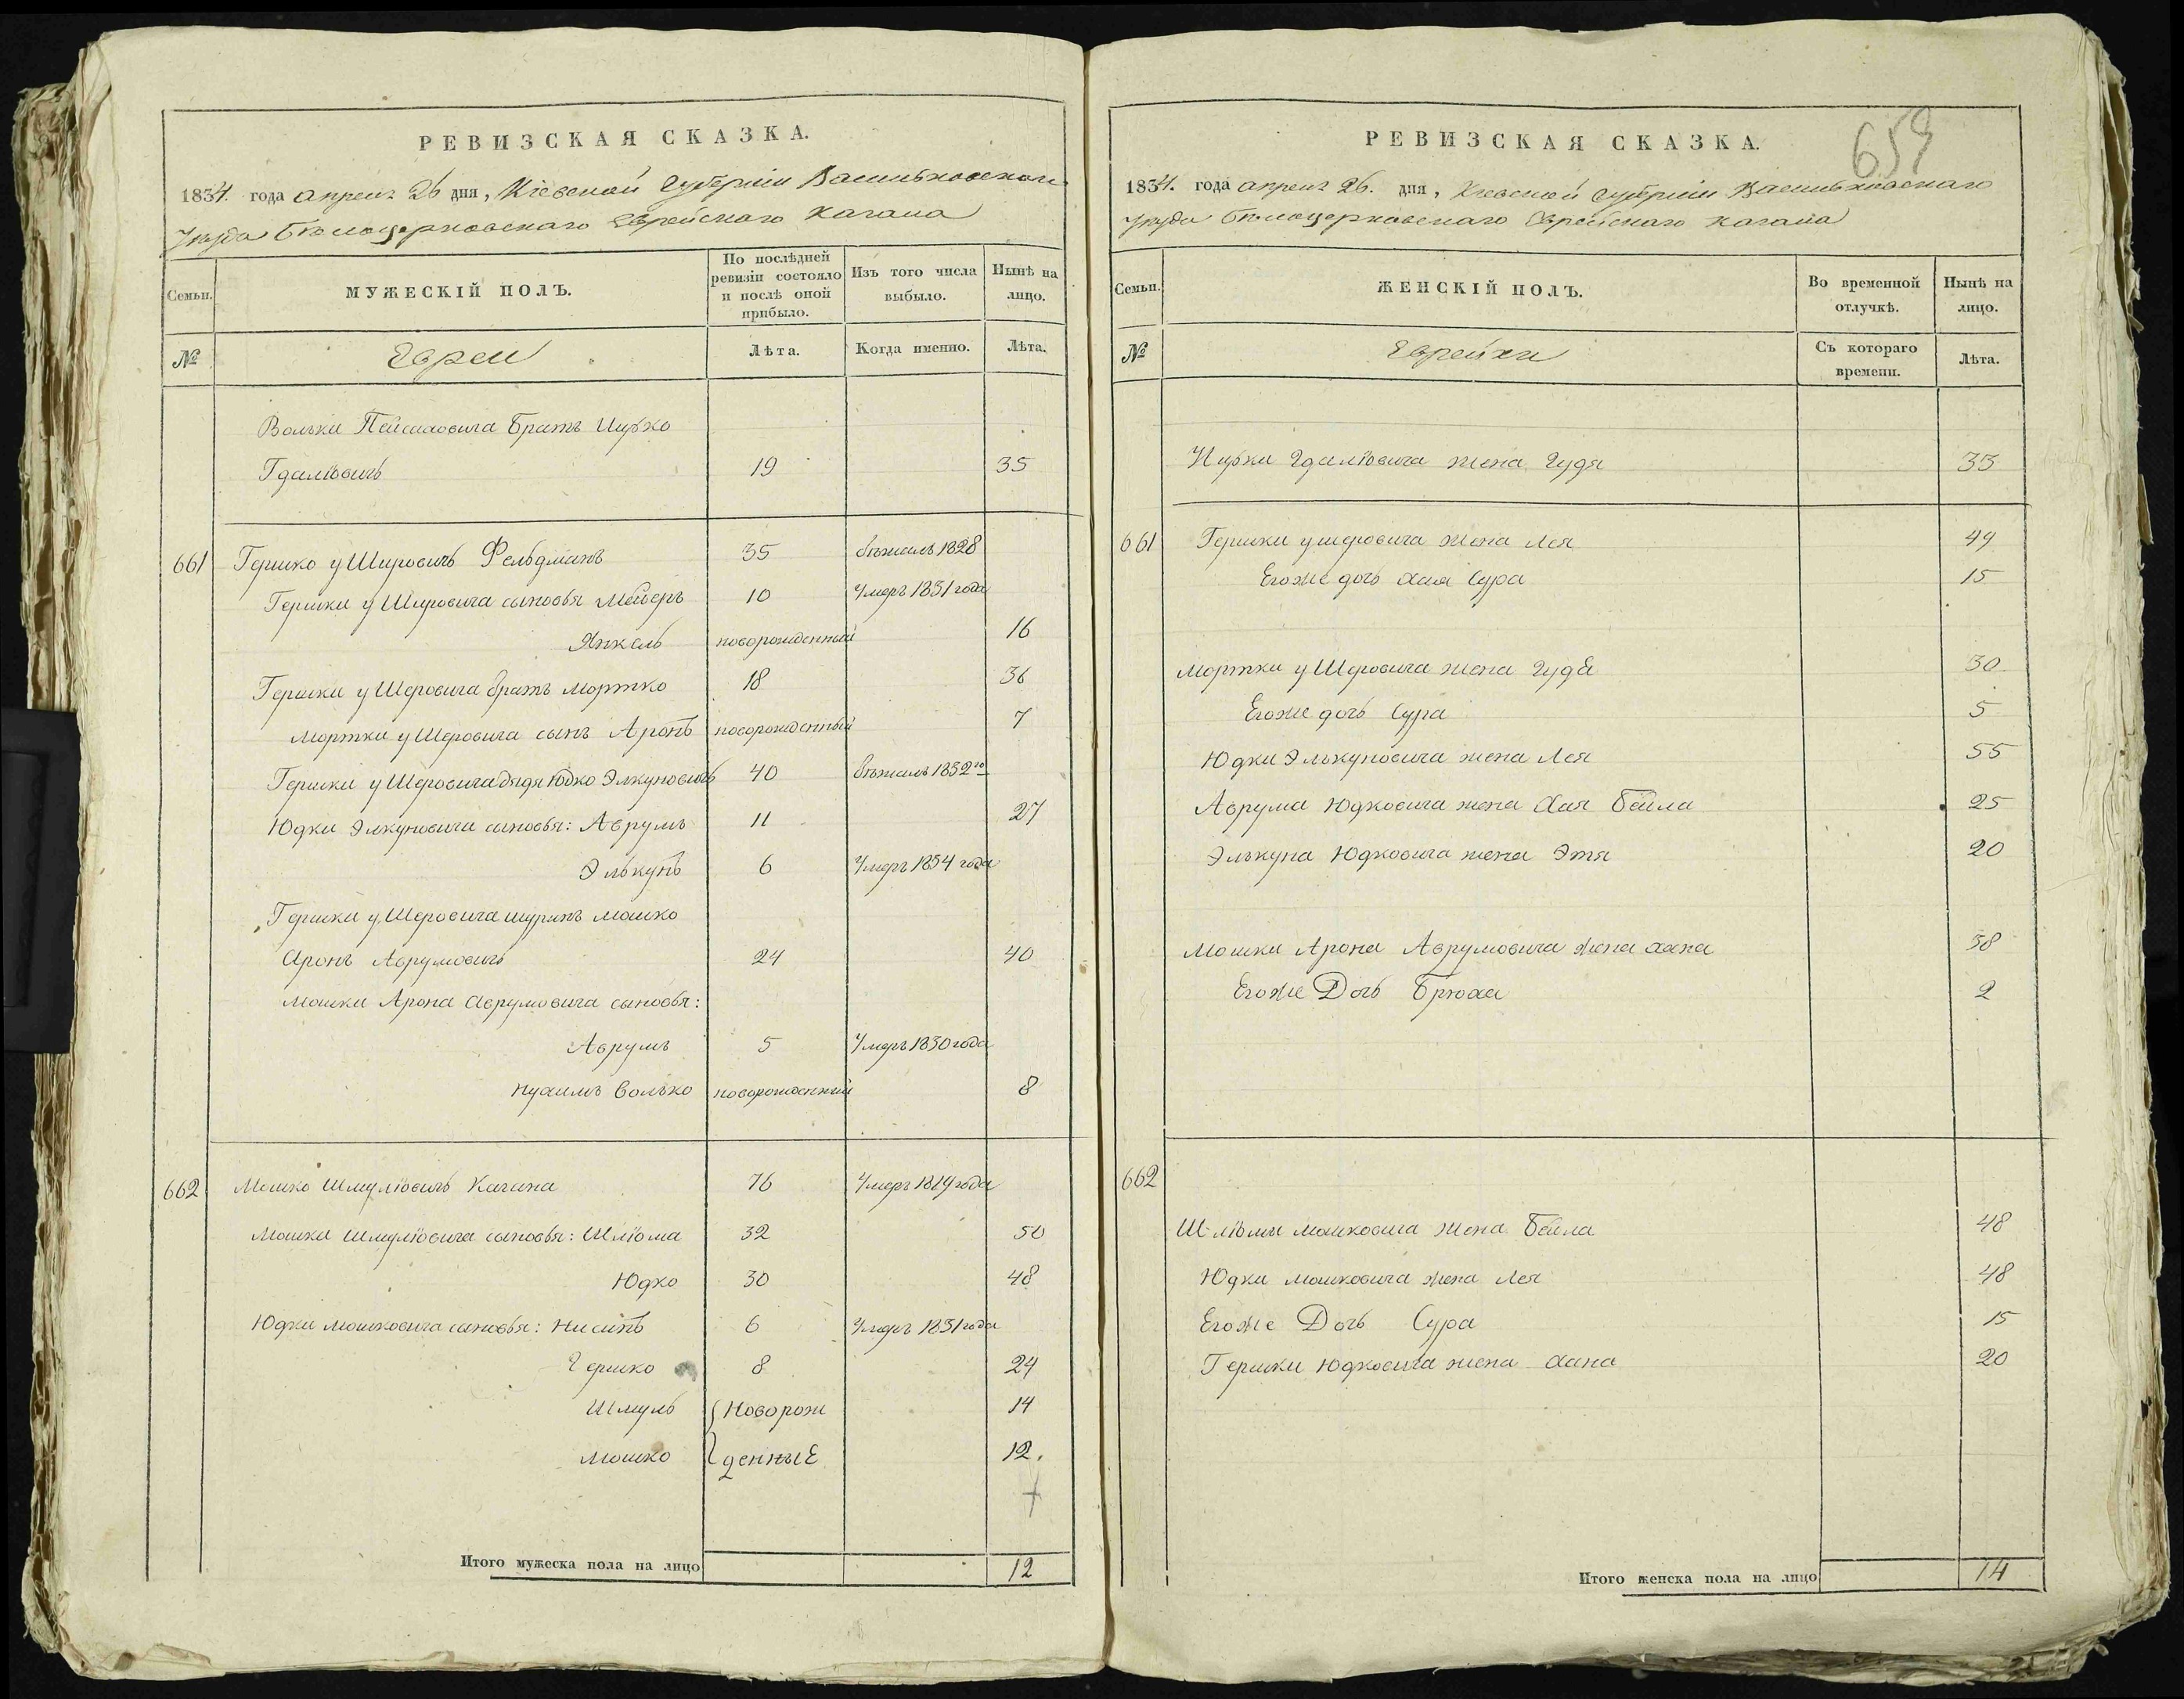 РЕВИЗСКАЯ СКАЗКА.
1834. года апреля 26 дня, Кіевской Губерніи Васильковскаго
Уезда Бѣлоцерковскаго Еврейскаго Кагала
Семьи.
МУЖЕСКІЙ ПОЛЪ.
По послѣдней ревизіи состояло и послѣ оной прибыло.
Изъ того числа выбыло.
Нынѣ на лицо.
№
Евреи
Лѣта.
Когда именно.
Лѣта.
Вольки Пейсаховича братъ Ицько
Гдаліовичъ 19 35
661 Гершко уШеровичъ Фельдманъ 35 бѣжалъ 1828
Гершки уШеровича сыновья Мейеръ 10 Умеръ 1831 года
Янкель новорожденный 16
Гершки уШеровича братъ Мортко 18 36
Мортки уШеровича сынъ Аронъ новорожденный 7
Гершки уШеровича дядя Юдко Элкуновичъ 40 бѣжалъ 1832го
Юдки Элкуновича сыновья: Аврумъ 11 27
Элькунъ 6 Умеръ 1834 года
Гершки уШеровича шуринъ Мошко
Аронъ Аврумовичъ 24 40
Мошки Арона Аврумовича сыновья:
Аврумъ 5 Умеръ 1830 года
Нухимъ Волько новорожденный 8
662 Мошко Шмуліовичъ Кагана 76 Умеръ 1819 года
Мошки Шмуліовича сыновья: Шліома 32 50
Юдко 30 48
Юдки Мошковича сыновья: Нисинъ 6 Умеръ 1831 года
Гершко 8 24
Шмуль Новорож 14
Мошко денные 12.
Итого мужеска пола на лицо 12
659
РЕВИЗСКАЯ СКАЗКА.
1834. года апреля 26. дня, Кіевской Губерніи Васильковскаго
Уезда Бѣлоцерковскаго Еврейскаго Кагала
Семьи.
ЖЕНСКІЙ ПОЛЪ.
Во временной отлучкѣ.
Нынѣ на лицо.
№
Еврейки
Съ котораго времени.
Лѣта.
Ицьки Гдаліовича жена Гудя 33
661 Гершки ушеровича жена Лея 49
Его же дочь Хая Сура 15
Мортки уШеровича жена Гуде 30
Его же дочь Сура 5
Юдки Элькуновича жена Лея 55
Аврума Юдковича жена Хая Бейла 25
Элькуна Юдковича жена Этя 20
Мошки Арона Аврумовича жена Хана 38
Его же Дочь Брюха 2
662
Шліомы Мошковича жена Бейла 48
Юдки Мошковича жена Лея 48
Его же Дочь Сура 15
Гершки Юдковича жена Хана 20
Итого женска пола на лицо 14